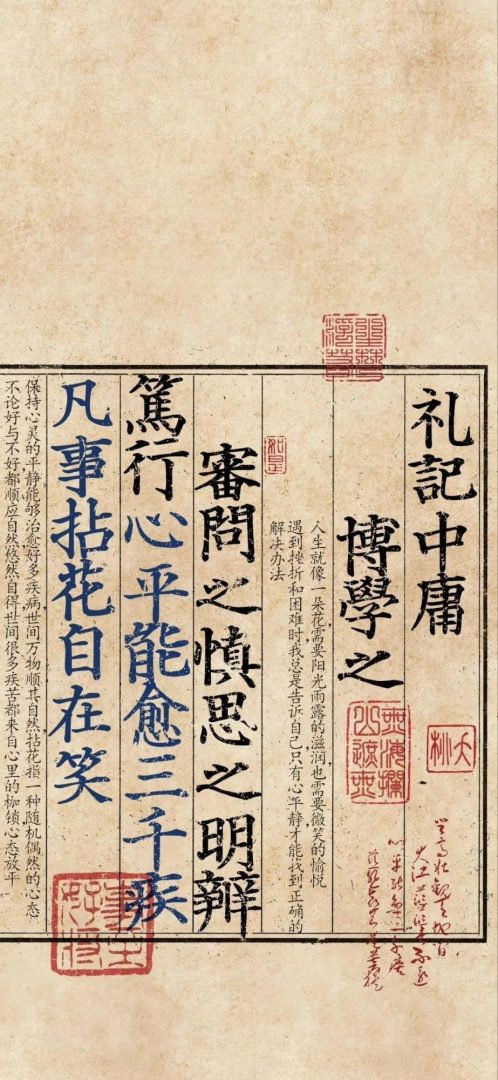 礼記中庸
博學之
人生就像一朵花需要阳光雨露的滋润也需要微笑的愉悦
遇到挫折和困难时我总是告诉自己只有心平静才能找到正确的
解决办法
如是
審問之慎思之明辨
篤行心平能愈三千疾
凡事拈花自在笑
保持心灵的平静能够治愈好多疾病世间万物顺其自然拈花指一种随机偶然的心态
不论好与不好都顺应自然悠然自得世间很多疾苦都来自心里的枷锁心态放平